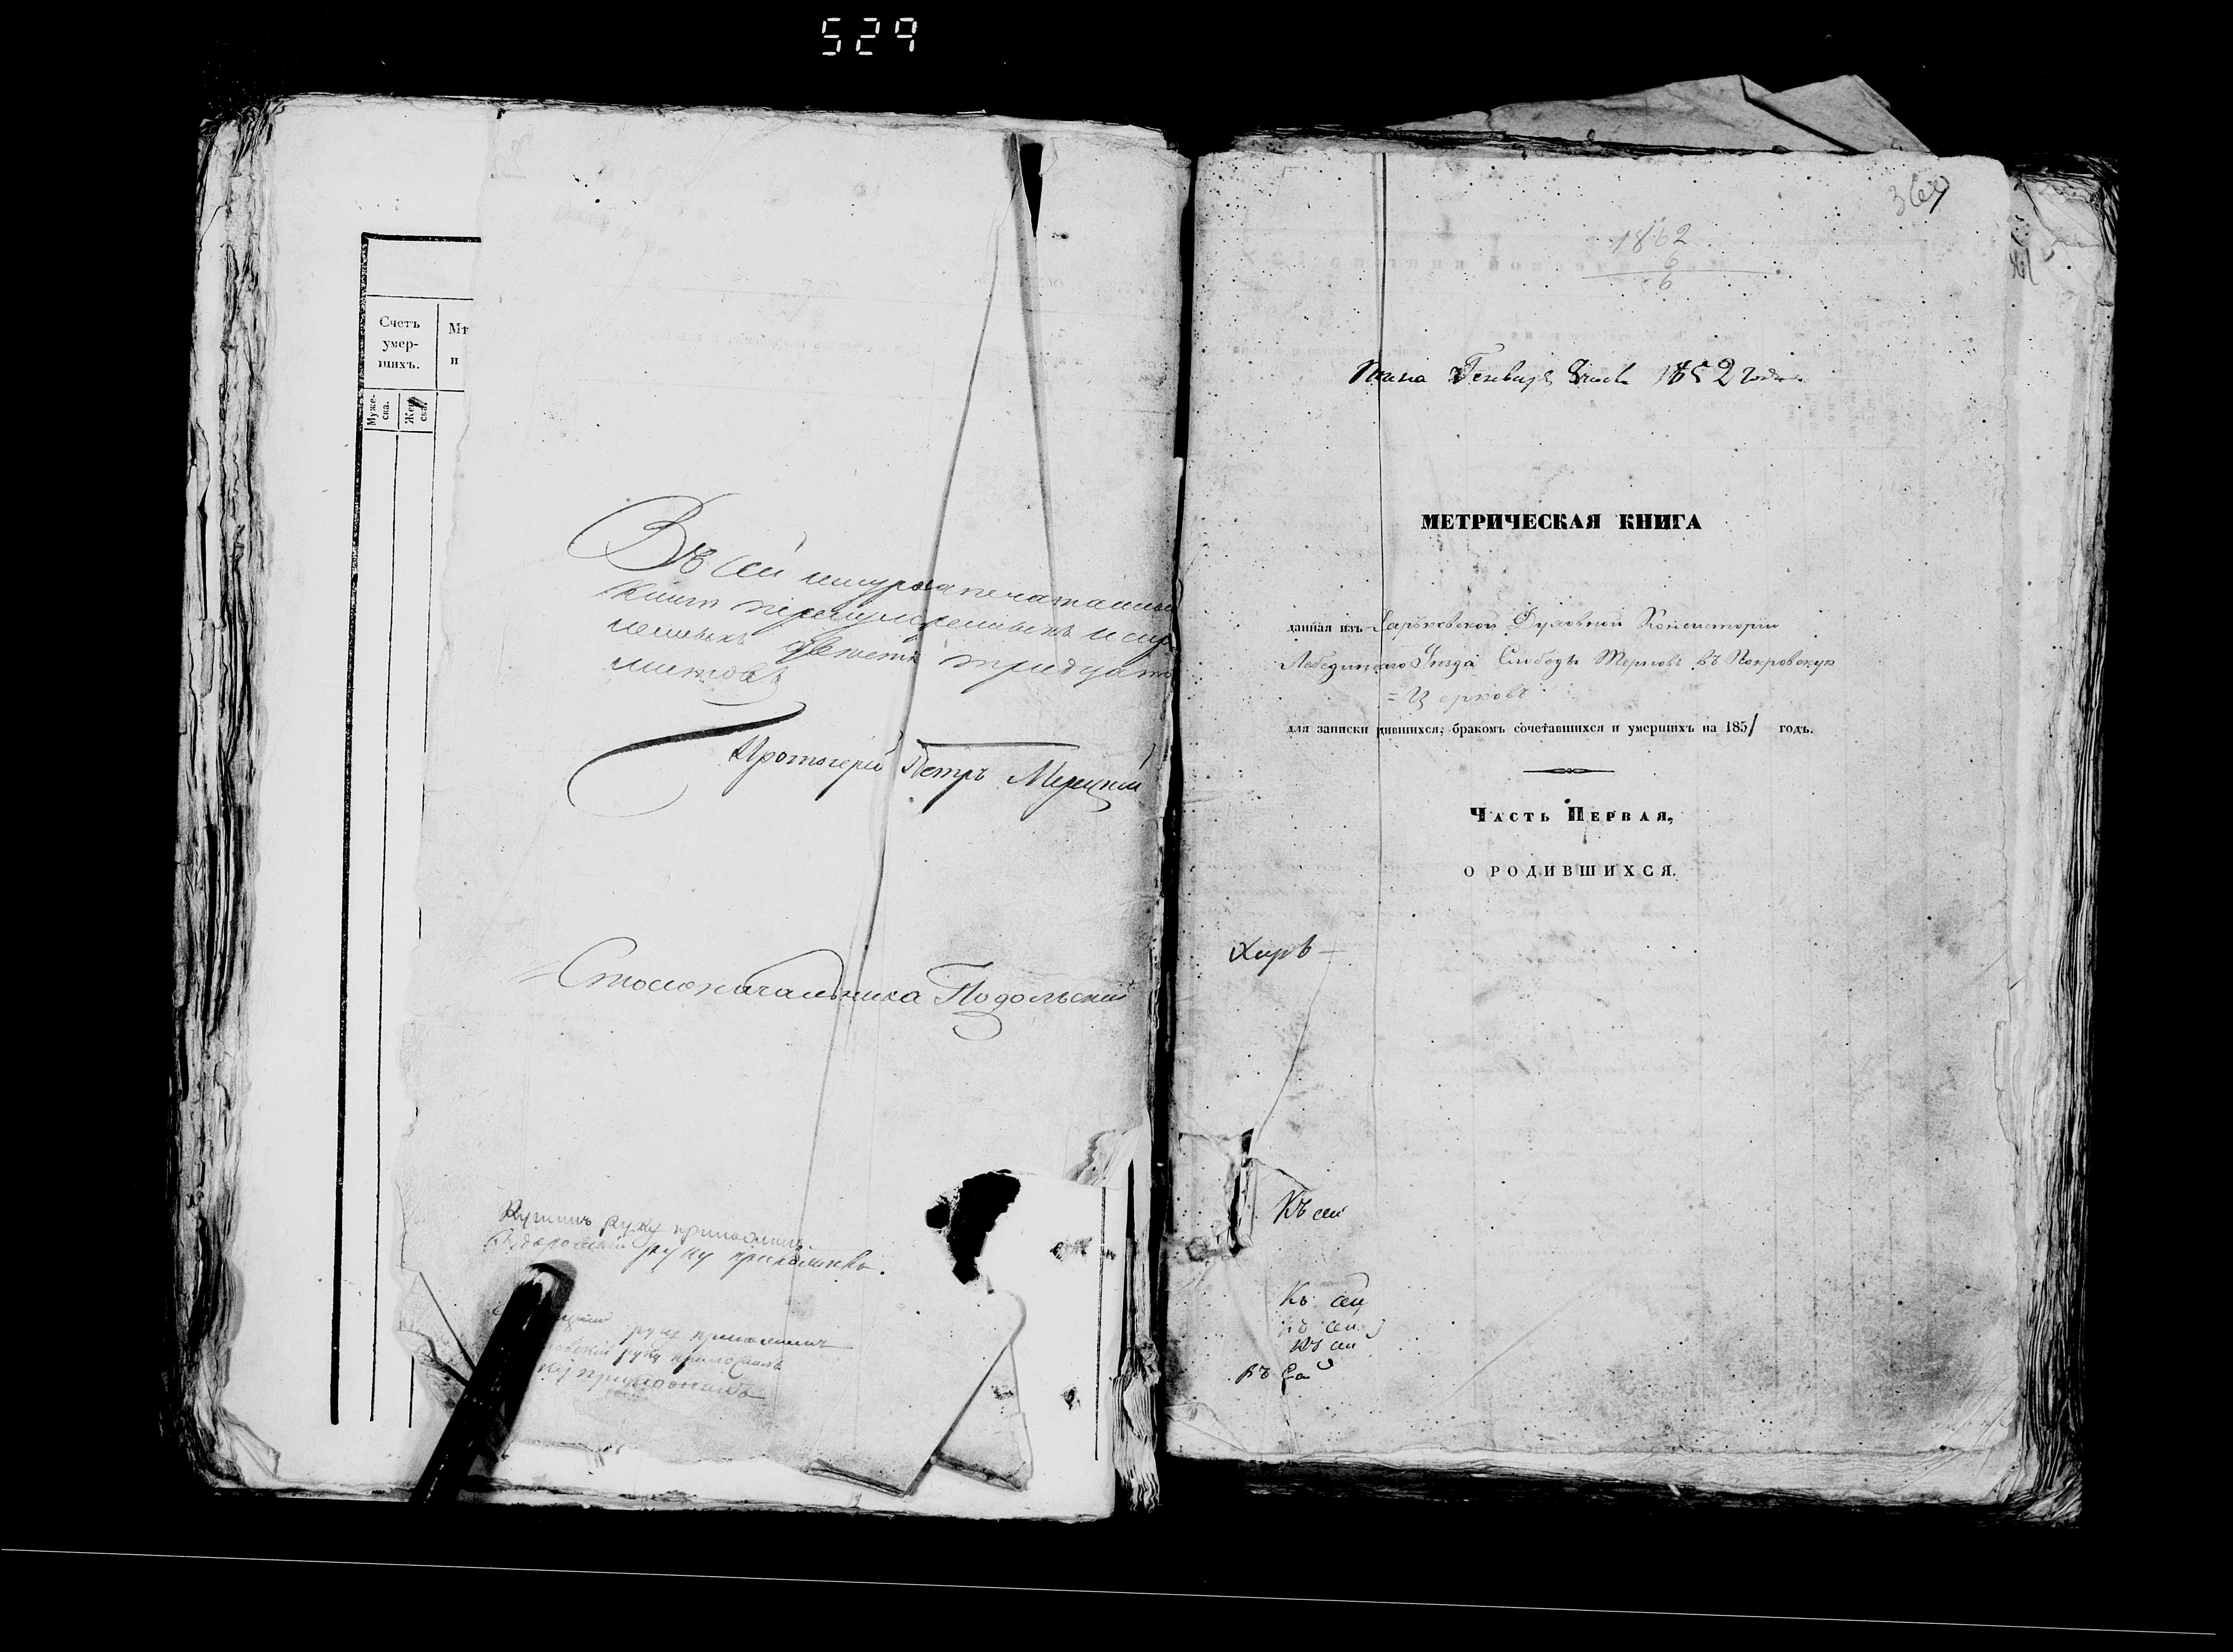 529
Счетъ
умер-
шихъ.
Муже-
ска.
Жен-
ска.
Въ сей шнуропечатанной
книги пронумерованныхъ и скре
пленныхъ двѣсти тридцать
листовъ
Протоіерей Петръ
Столоначальника Подольскій
руку приложилъ
руку приложилъ.
руку приложилъ
руку приложилъ
приложилъ
1862
6
6
Генваря 1852 года
МЕТРИЧЕСКАЯ КНИГА
данная изъ Харьковской Духовной Консисторіи
Лебединскаго Уѣзда Слободы Терновъ въ Покровскую
= Церковь
для записки дившихся, бракомъ сочетавшихся и умершихъ на 1851 годъ.
ЧАСТЬ ПЕРВАЯ,
О РОДИВШИХСЯ.
Къ сей
Къ сей
Къ сей
Къ сей
Къ